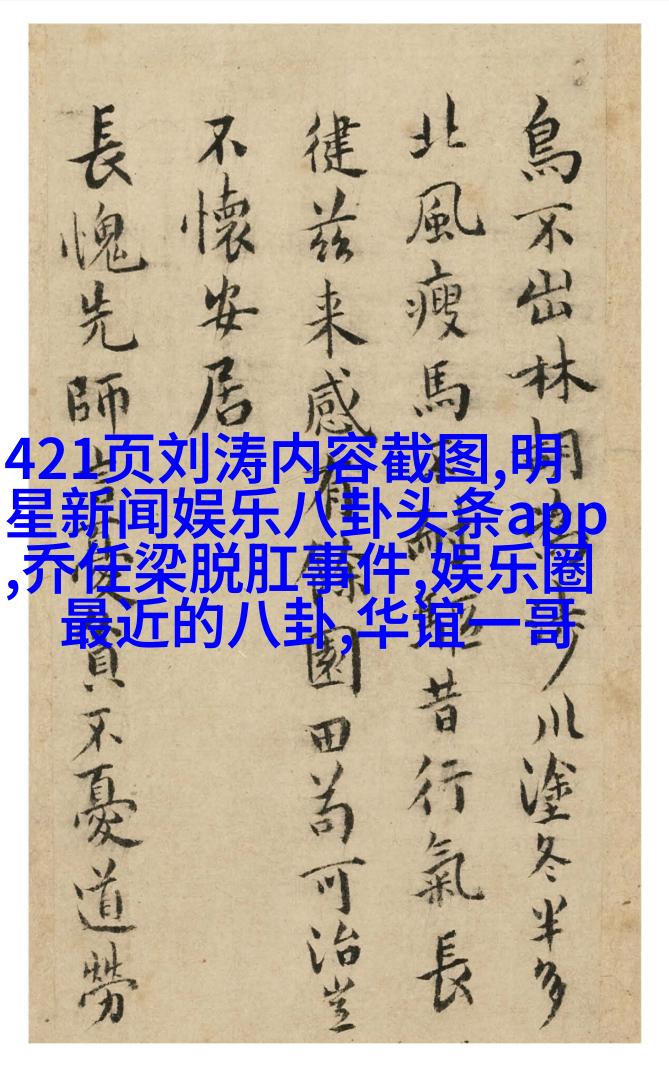 鳥不出林步川塗冬半多
北風瘦馬不耐驅昔行氣長
徤茲来感有餘園田苟可治豈
不懷安居
長愧先師言憂貧不憂道勞
421页刘涛内容截图,明
星新闻娱乐八卦头条app
,乔任梁脱肛事件,娱乐圈
最近的八卦,华谊一哥